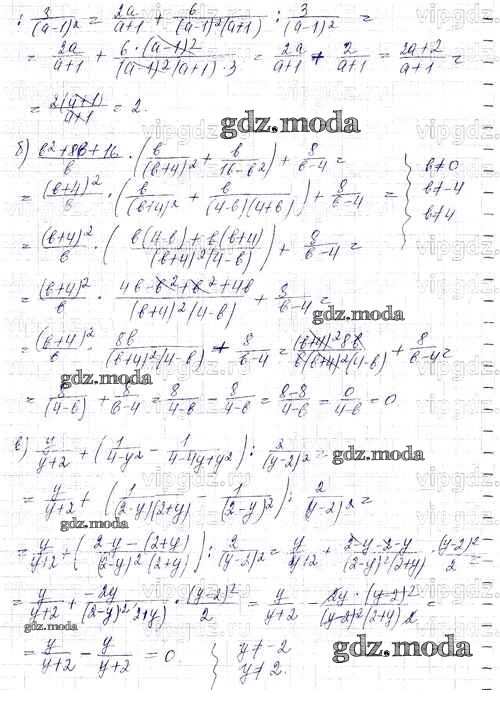 : 3/(a-1)² = 2a/(a+1) + 6/((a-1)²(a+1)) : 3/(a-1)² =
= 2a/(a+1) + 6·(a-1)²/((a-1)²(a+1)·3) = 2a/(a+1) + 2/(a+1) = (2a+2)/(a+1) =
= 2(a+1)/(a+1) = 2.
gdz.moda
б) (b²+8b+16)/b · (b/(b+4)² + b/(16-b²)) + 8/(b-4) = { b≠0
= (b+4)²/b · (b/(b+4)² + b/((4-b)(4+b))) + 8/(b-4) = b≠-4
b≠4
= (b+4)²/b · ((b(4-b)+b(b+4))/((b+4)²(4-b))) + 8/(b-4) =
= (b+4)²/b · (4b-b²+b²+4b)/((b+4)²(4-b)) + 8/(b-4) =
gdz.moda
= (b+4)²/b · 8b/((b+4)²(4-b)) + 8/(b-4) = (b+4)²8b/(b(b+4)²(4-b)) + 8/(b-4) =
gdz.moda
= 8/(4-b) + 8/(b-4) = 8/(4-b) - 8/(4-b) = (8-8)/(4-b) = 0/(4-b) = 0
в) y/(y+2) + (1/(4-y²) - 1/(4-4y+y²)) : 2/(y-2)² =
gdz.moda
= y/(y+2) + (1/((2-y)(2+y)) - 1/(2-y)²) : 2/(y-2)² =
gdz.moda
= y/(y+2) + ((2-y-(2+y))/((2-y)²(2+y))) : 2/(y-2)² = y/(y+2) + (2-y-2-y)/((2-y)²(2+y)) · (y-2)²/2 =
= y/(y+2) + -2y/((2-y)²(2+y)) · (y-2)²/2 = y/(y+2) - 2y·(y-2)²/((y-2)²(2+y)2) =
gdz.moda
= y/(y+2) - y/(y+2) = 0. { y≠-2
y≠2.
gdz.moda